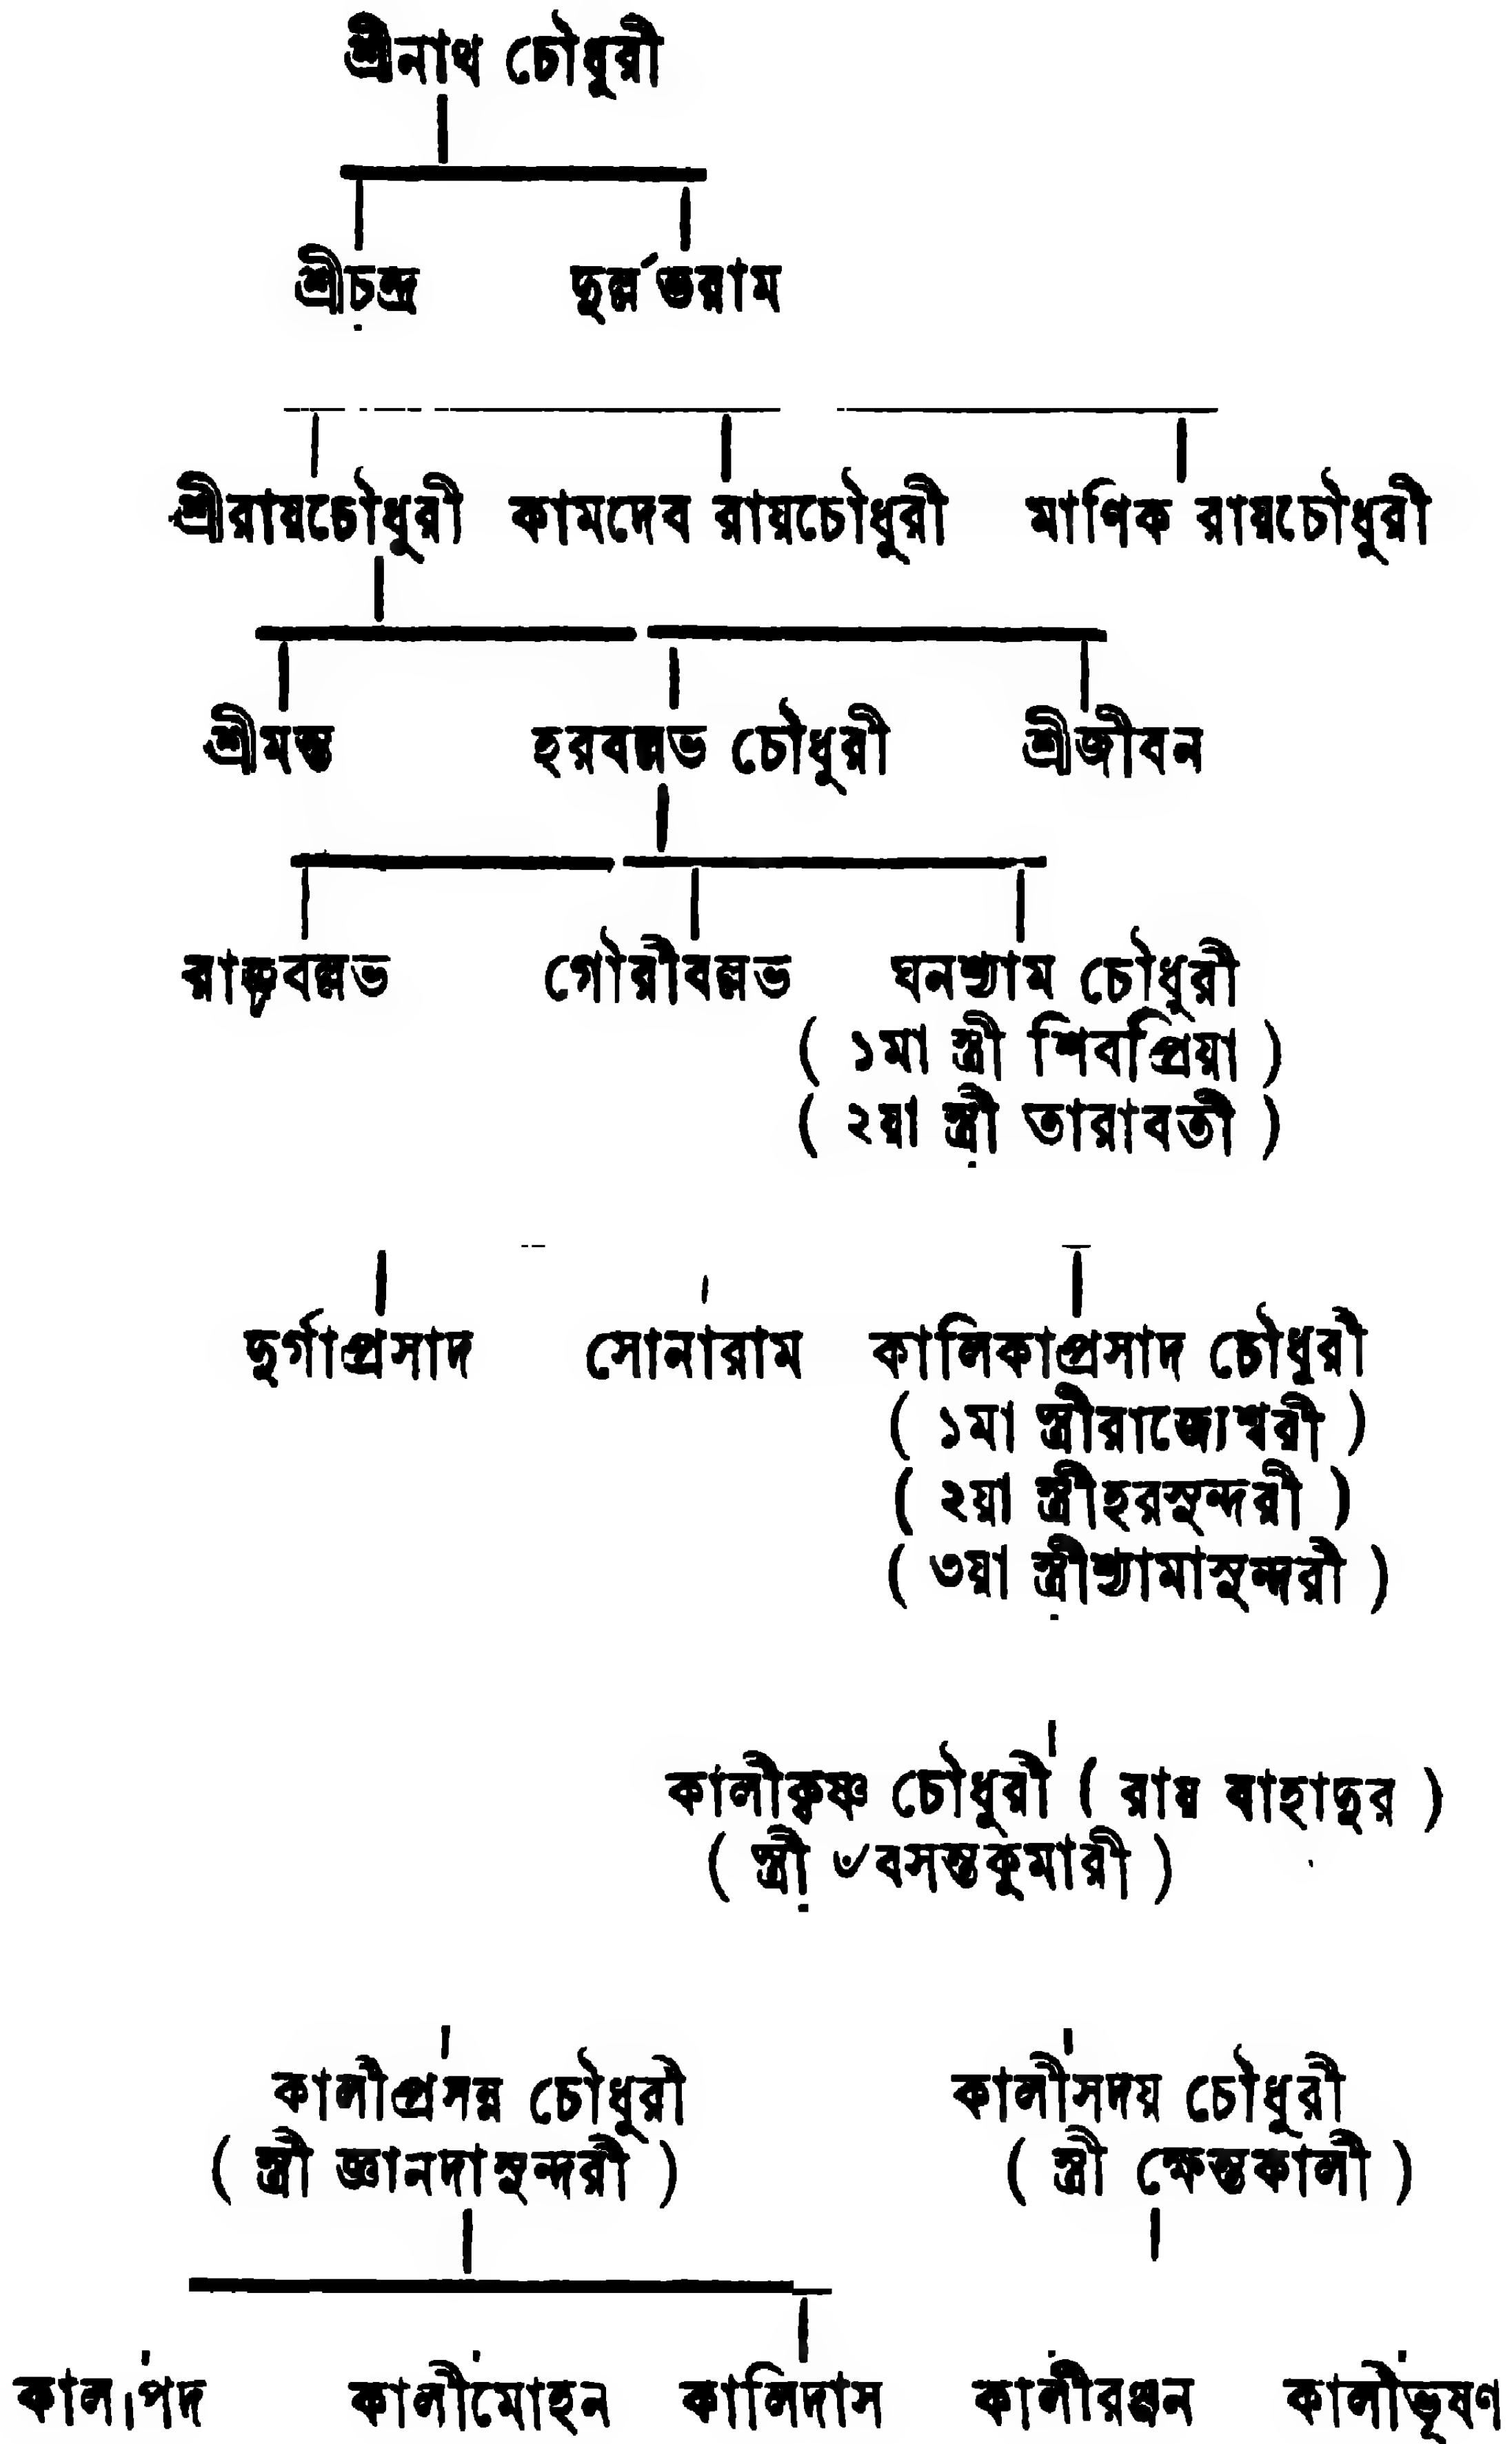 শ্রীনাথ চৌধুরী
শ্রীচন্দ্র দুর্ল্লভরাম
শ্রীরায়চৌধুরী কামদেব রায়চৌধুরী মাণিক রায়চৌধুরী
শ্রীমন্ত হরবল্লভ চৌধুরী শ্রীজীবন
গৌরীবল্লভ ঘনশ্যাম চৌধুরী
( ১মা স্ত্রী শিবপ্রিয়া )
( ২য়া স্ত্রী তারাবতী )
দুর্গাপ্রসাদ সোনারাম কালিকাপ্রসাদ চৌধুরী
( ১মা স্ত্রীরাজ্যেশ্বরী )
( ২য়া স্ত্রীহরসুন্দরী )
( ৩য়া স্ত্রীশ্যামাসুন্দরী )
কালীকৃষ্ণ চৌধুরী ( রায় বাহাদুর )
( স্ত্রী ৺বসন্তকুমারী )
কালীপ্রসন্ন চৌধুরী কালীসদয় চৌধুরী
( স্ত্রী জ্ঞানদাসুন্দরী ) ( স্ত্রী ক্ষেন্তকালী )
কালীপদ কালীমোহন কালিদাস কালীরঞ্জন কালীভূষণ